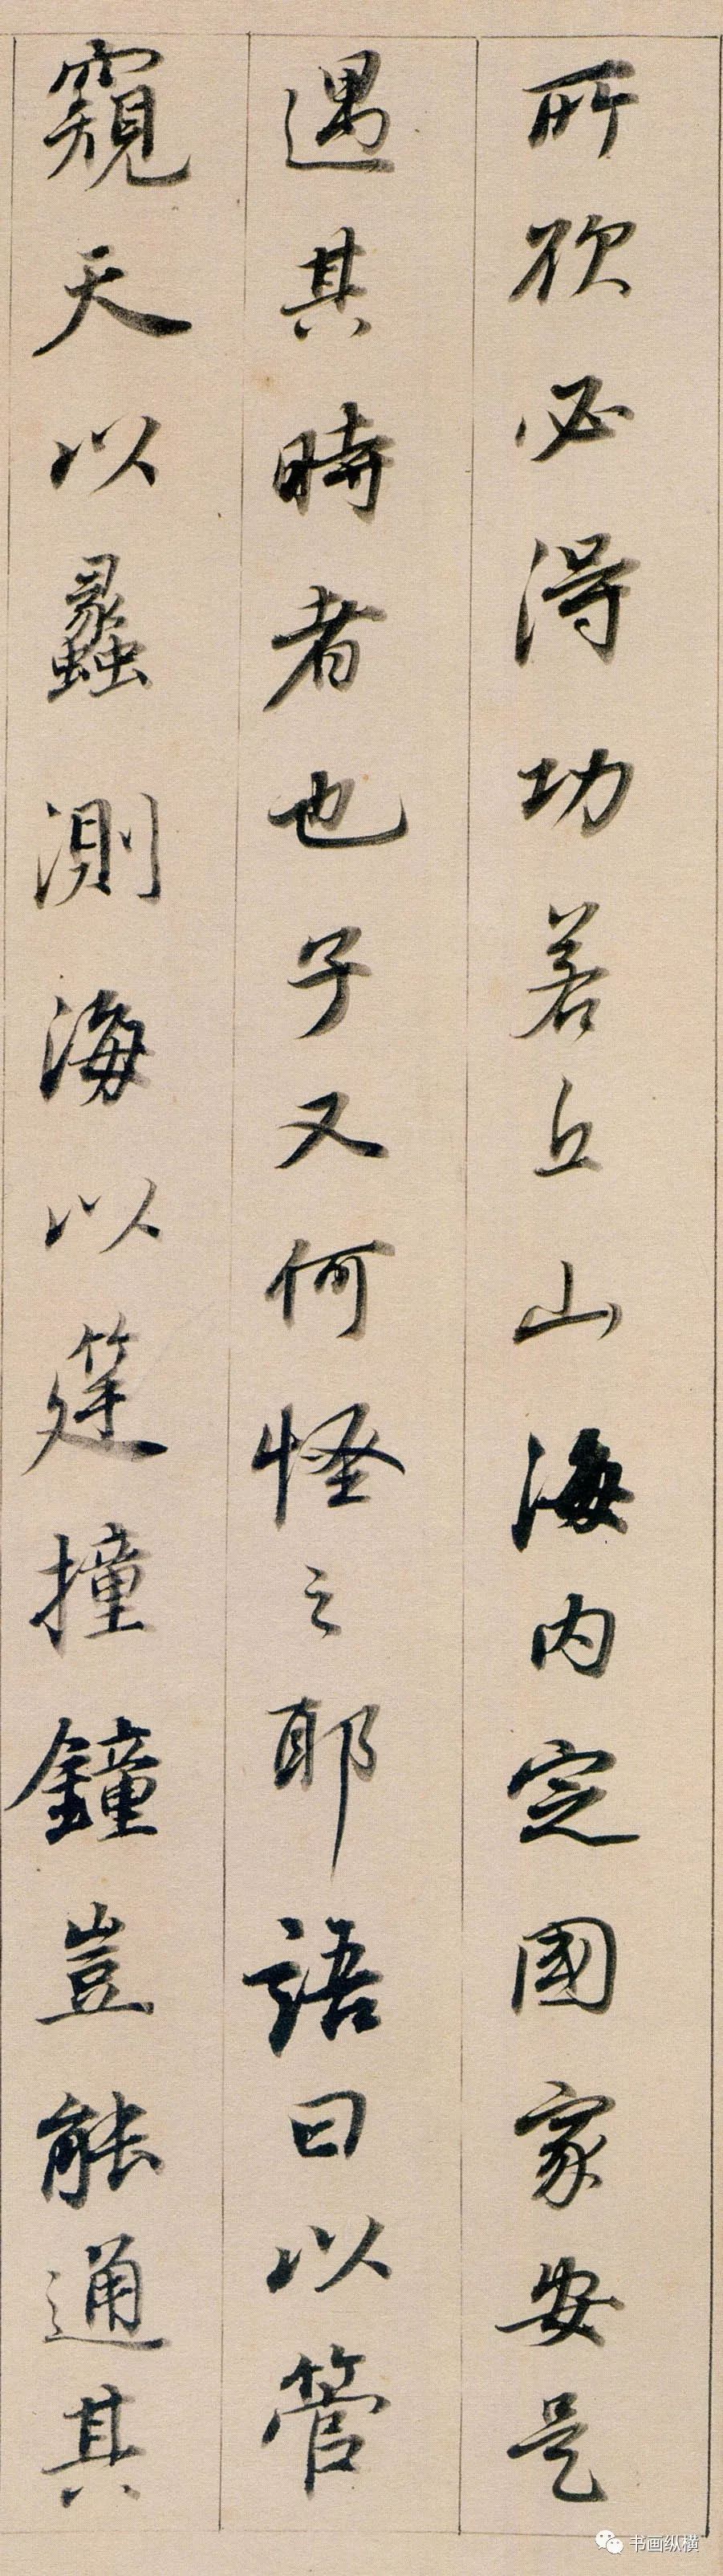 所欲必得功若丘山海内定國家安是
遇其時者也子又何怪之耶語曰以管
窺天以蠡測海以筳撞鐘豈能通其
书画纵横